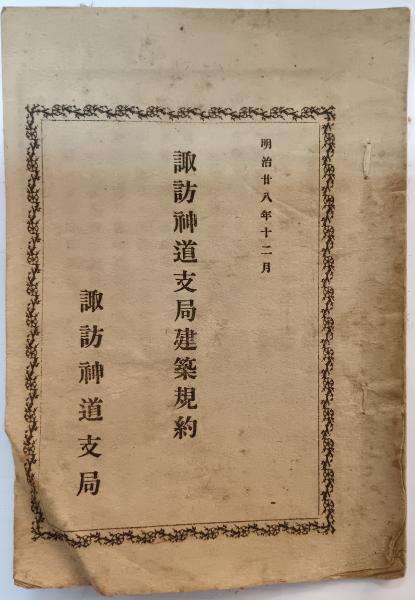 明治廿八年十二月
諏訪神道支局建築規約
諏訪神道支局